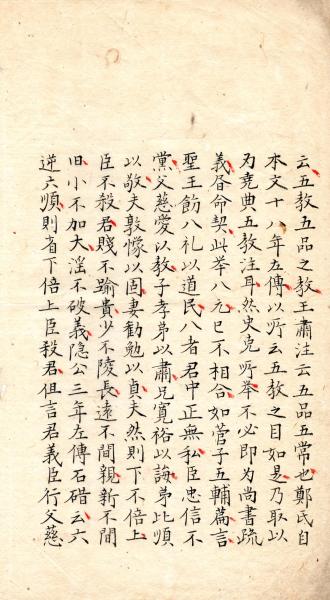 云五教五品之教王肅注云五品五常也鄭氏自
本文十八年左傳以所云五教之目如是乃取以
为堯典五教注耳然史克所舉不必即为尚書疏
義昏命契此舉八元已不相合如管子五輔篇言
聖王飭八礼以道民八者君中正無私臣忠信不
黨父慈愛以教子孝弟以肅兄寬裕以誨弟比順
以敬夫敦懞以固妻勸勉以貞夫然則下不倍上
臣不殺君賤不踰貴少不陵長遠不間親新不間
旧小不加大淫不破義隐公三年左傳石碏云六
逆六順則省下倍上臣殺君但言君義臣行父慈